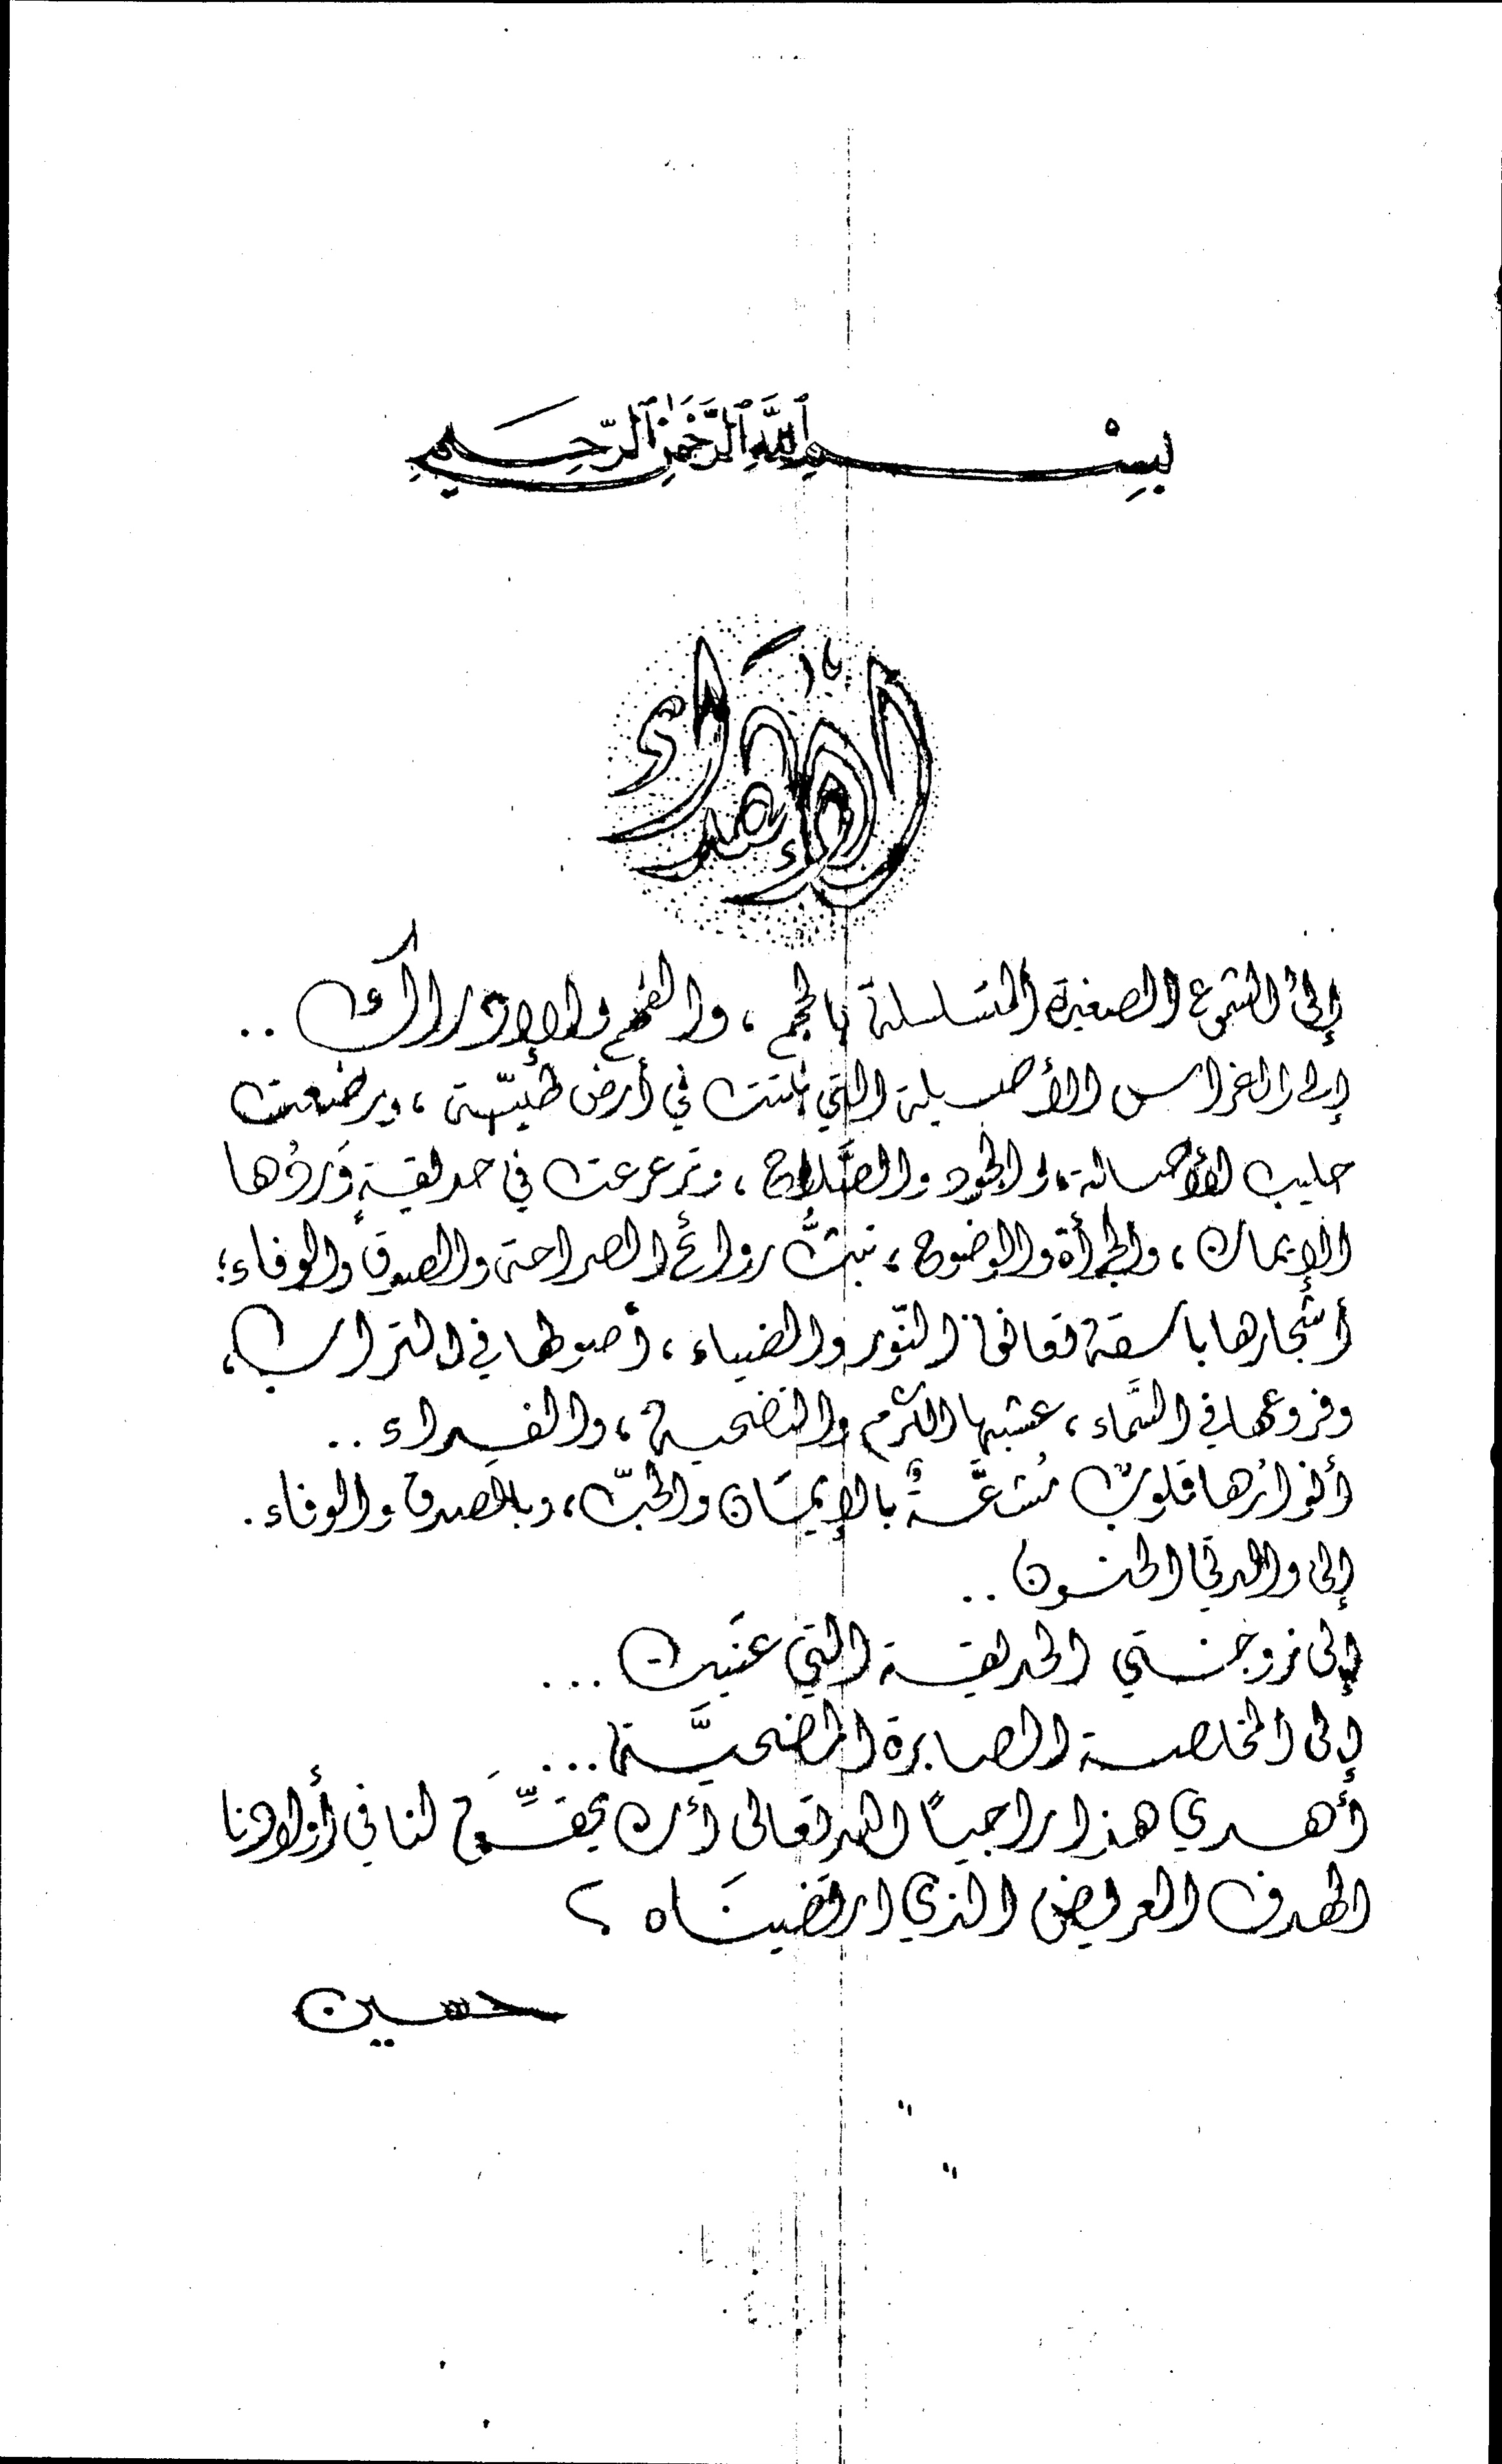 بِسْمِ ٱللَّهِ ٱلرَّحْمَٰنِ ٱلرَّحِيمِ
الإهداء
إلى الشموع الصغيرة المتسلسلة بالحجم ، والفهم والإدراك ..
إلى الغراس الأصيلة التي نبتت في أرض طيّبة ، ورضعت
حليب الأصالة ، والجود والصَّلاح ، وترعرعت في حديقةٍ وَردُها
الإيمان ، والجرأة والوضوح ، تبثُّ روائح الصراحة والصدق والوفاء ؛
أشجارها باسقة تعانق النّور والضياء ، أصولها في التراب ،
وفروعها في السَّماء ، عشبها الكرم والتضحية ، والفداء ..
أنوارُها قلوبٌ مُشعَّةٌ بالإيمَان والحبّ ، وبالصدق والوفاء .
إلى والدتي الحنون ..
إلى زوجتي الحديقة التي عَنيت ...
إلى المخلصة الصابرة المضحيَّة ...
أهدي هذا راجياً الله تعالى أن يحقِّق لنا في أولادنا
الهدف العريض الذي ارتضينَاه
حسين